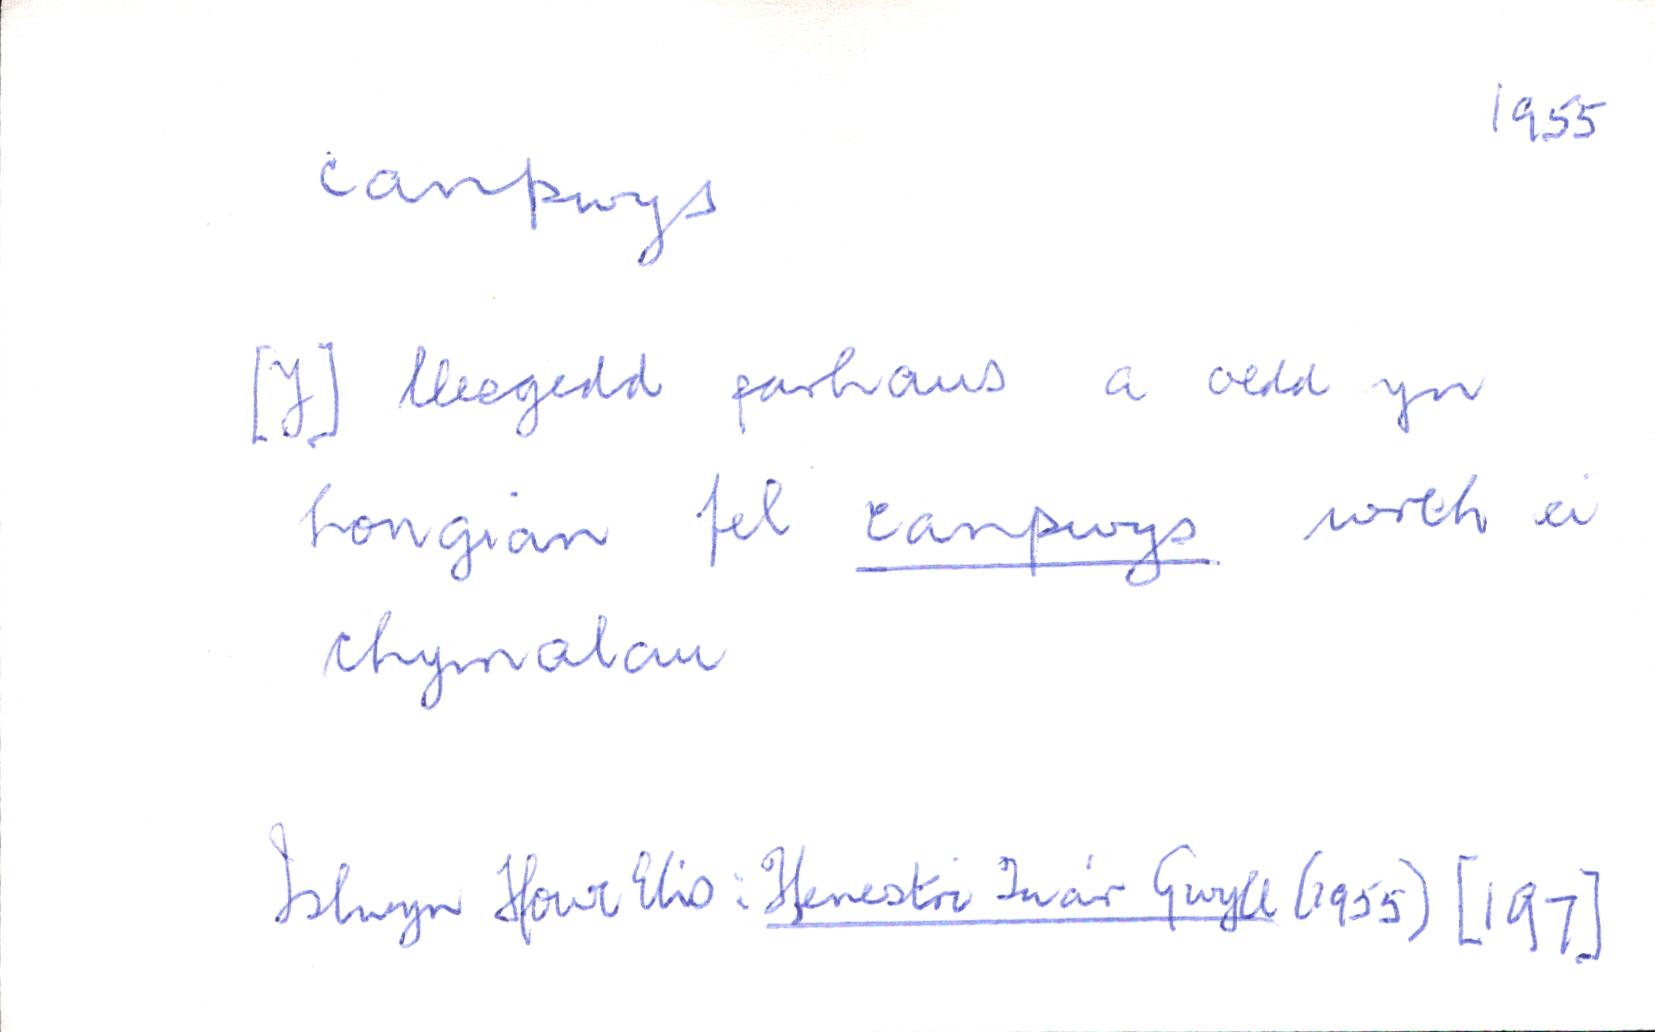 1955
canpwys
[Y] llesgedd parhaus a oedd yn
hongian fel canpwys wrth ei
chymalau
Islwyn Ffowc Elis: Ffenestri Tua'r Gwyll (1955) [197]